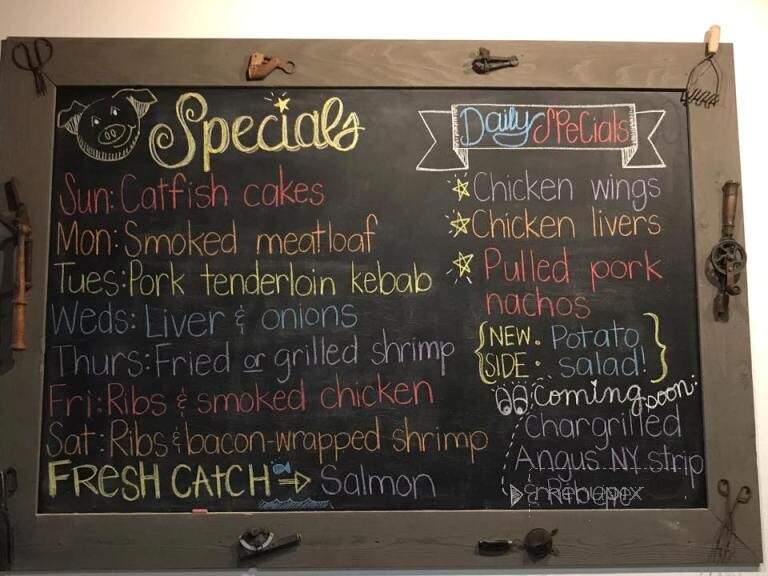 Specials
Sun: Catfish cakes
Mon: Smoked meatloaf
Tues: Pork tenderloin kebab
Weds: Liver & onions
Thurs: Fried or grilled shrimp
Fri: Ribs & smoked chicken
Sat: Ribs & bacon-wrapped shrimp
FRESH CATCH ⇒ Salmon
Daily Specials
☆ Chicken wings
☆ Chicken livers
☆ Pulled pork
nachos
{NEW. Potato
SIDE: salad!}
Coming soon:
Chargrilled
Angus NY strip
& Ribeye